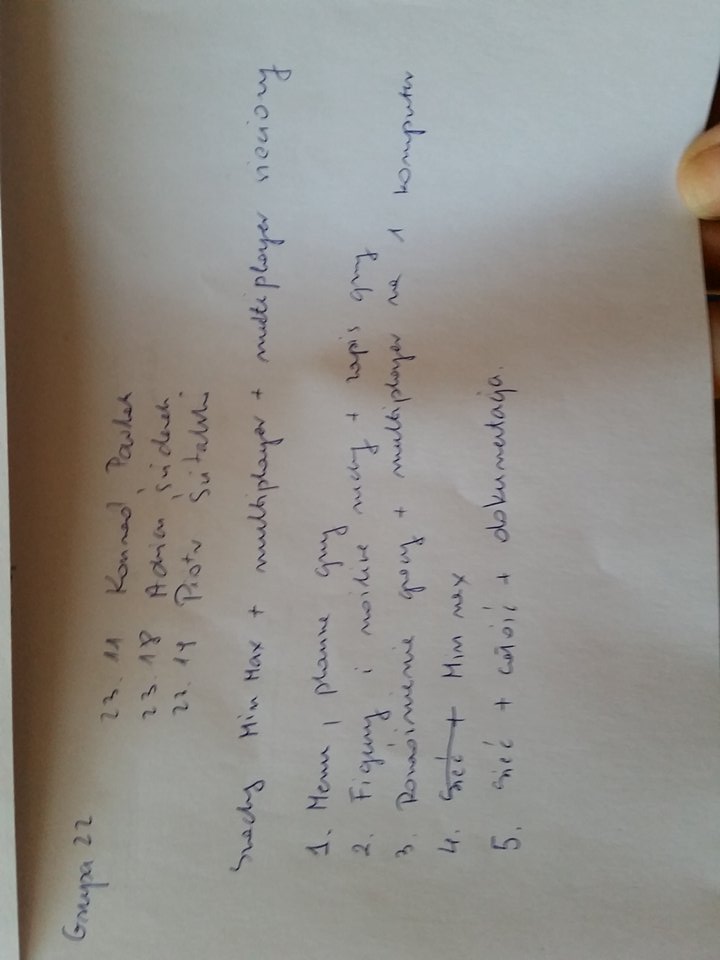 Grupa 22
23. 11 Konrad Pawlak
23. 18 Adrian
22. 14 Piotr
Szachy Min Max + multiplayer + multiplayer sieciowy
1. Menu, plansze gry
2. Figury i możliwe ruchy + zapis gry
3. gry + multiplayer na 1 komputer
4. Sieć + Min max
5. Sieć + całość + dokumentacja.